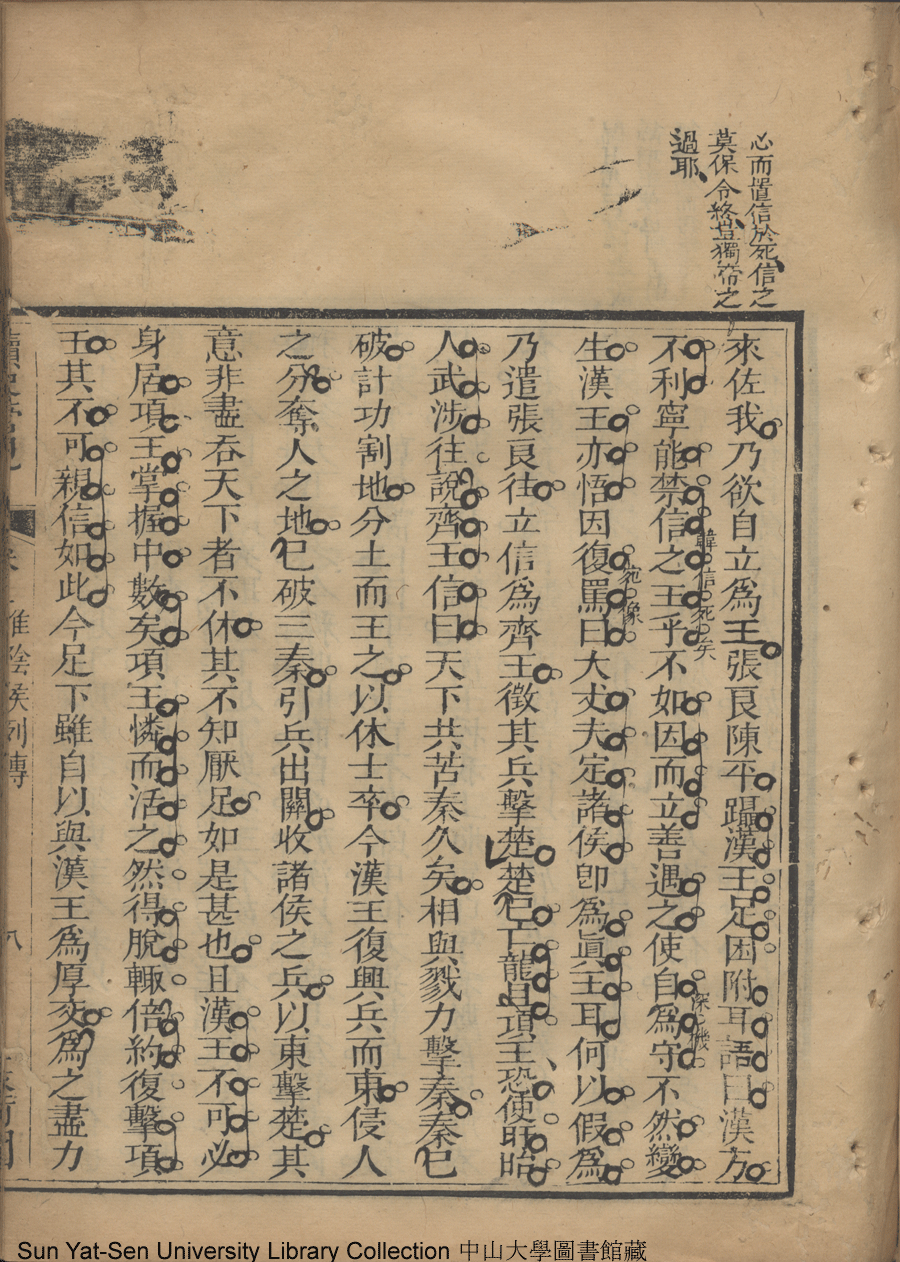 心而置信於死信之
莫保令終豈獨帝之
過耶
來佐我乃欲自立爲王張良陳平躡漢王足因附耳語曰漢方
不利寧能禁信之王乎不如因而立善遇之使自爲守不然變
韓信死矣
深機
生漢王亦悟因復罵曰大丈夫定諸侯卽爲眞王耳何以假爲
宛像
乃遣張良往立信爲齊王徵其兵擊楚楚已亡龍且項王恐使盱眙
人武涉往說齊王信曰天下共苦秦久矣相與戮力擊秦秦已
破計功割地分土而王之以休士卒今漢王復興兵而東侵人
之分奪人之地已破三秦引兵出關收諸侯之兵以東擊楚其
意非盡吞天下者不休其不知厭足如是甚也且漢王不可必
身居項王掌握中數矣項王憐而活之然得脫輙倍約復擊項
王其不可親信如此今足下雖自以與漢王爲厚交爲之盡力
淮陰侯列傳
八
Sun Yat-Sen University Library Collection 中山大學圖書館藏